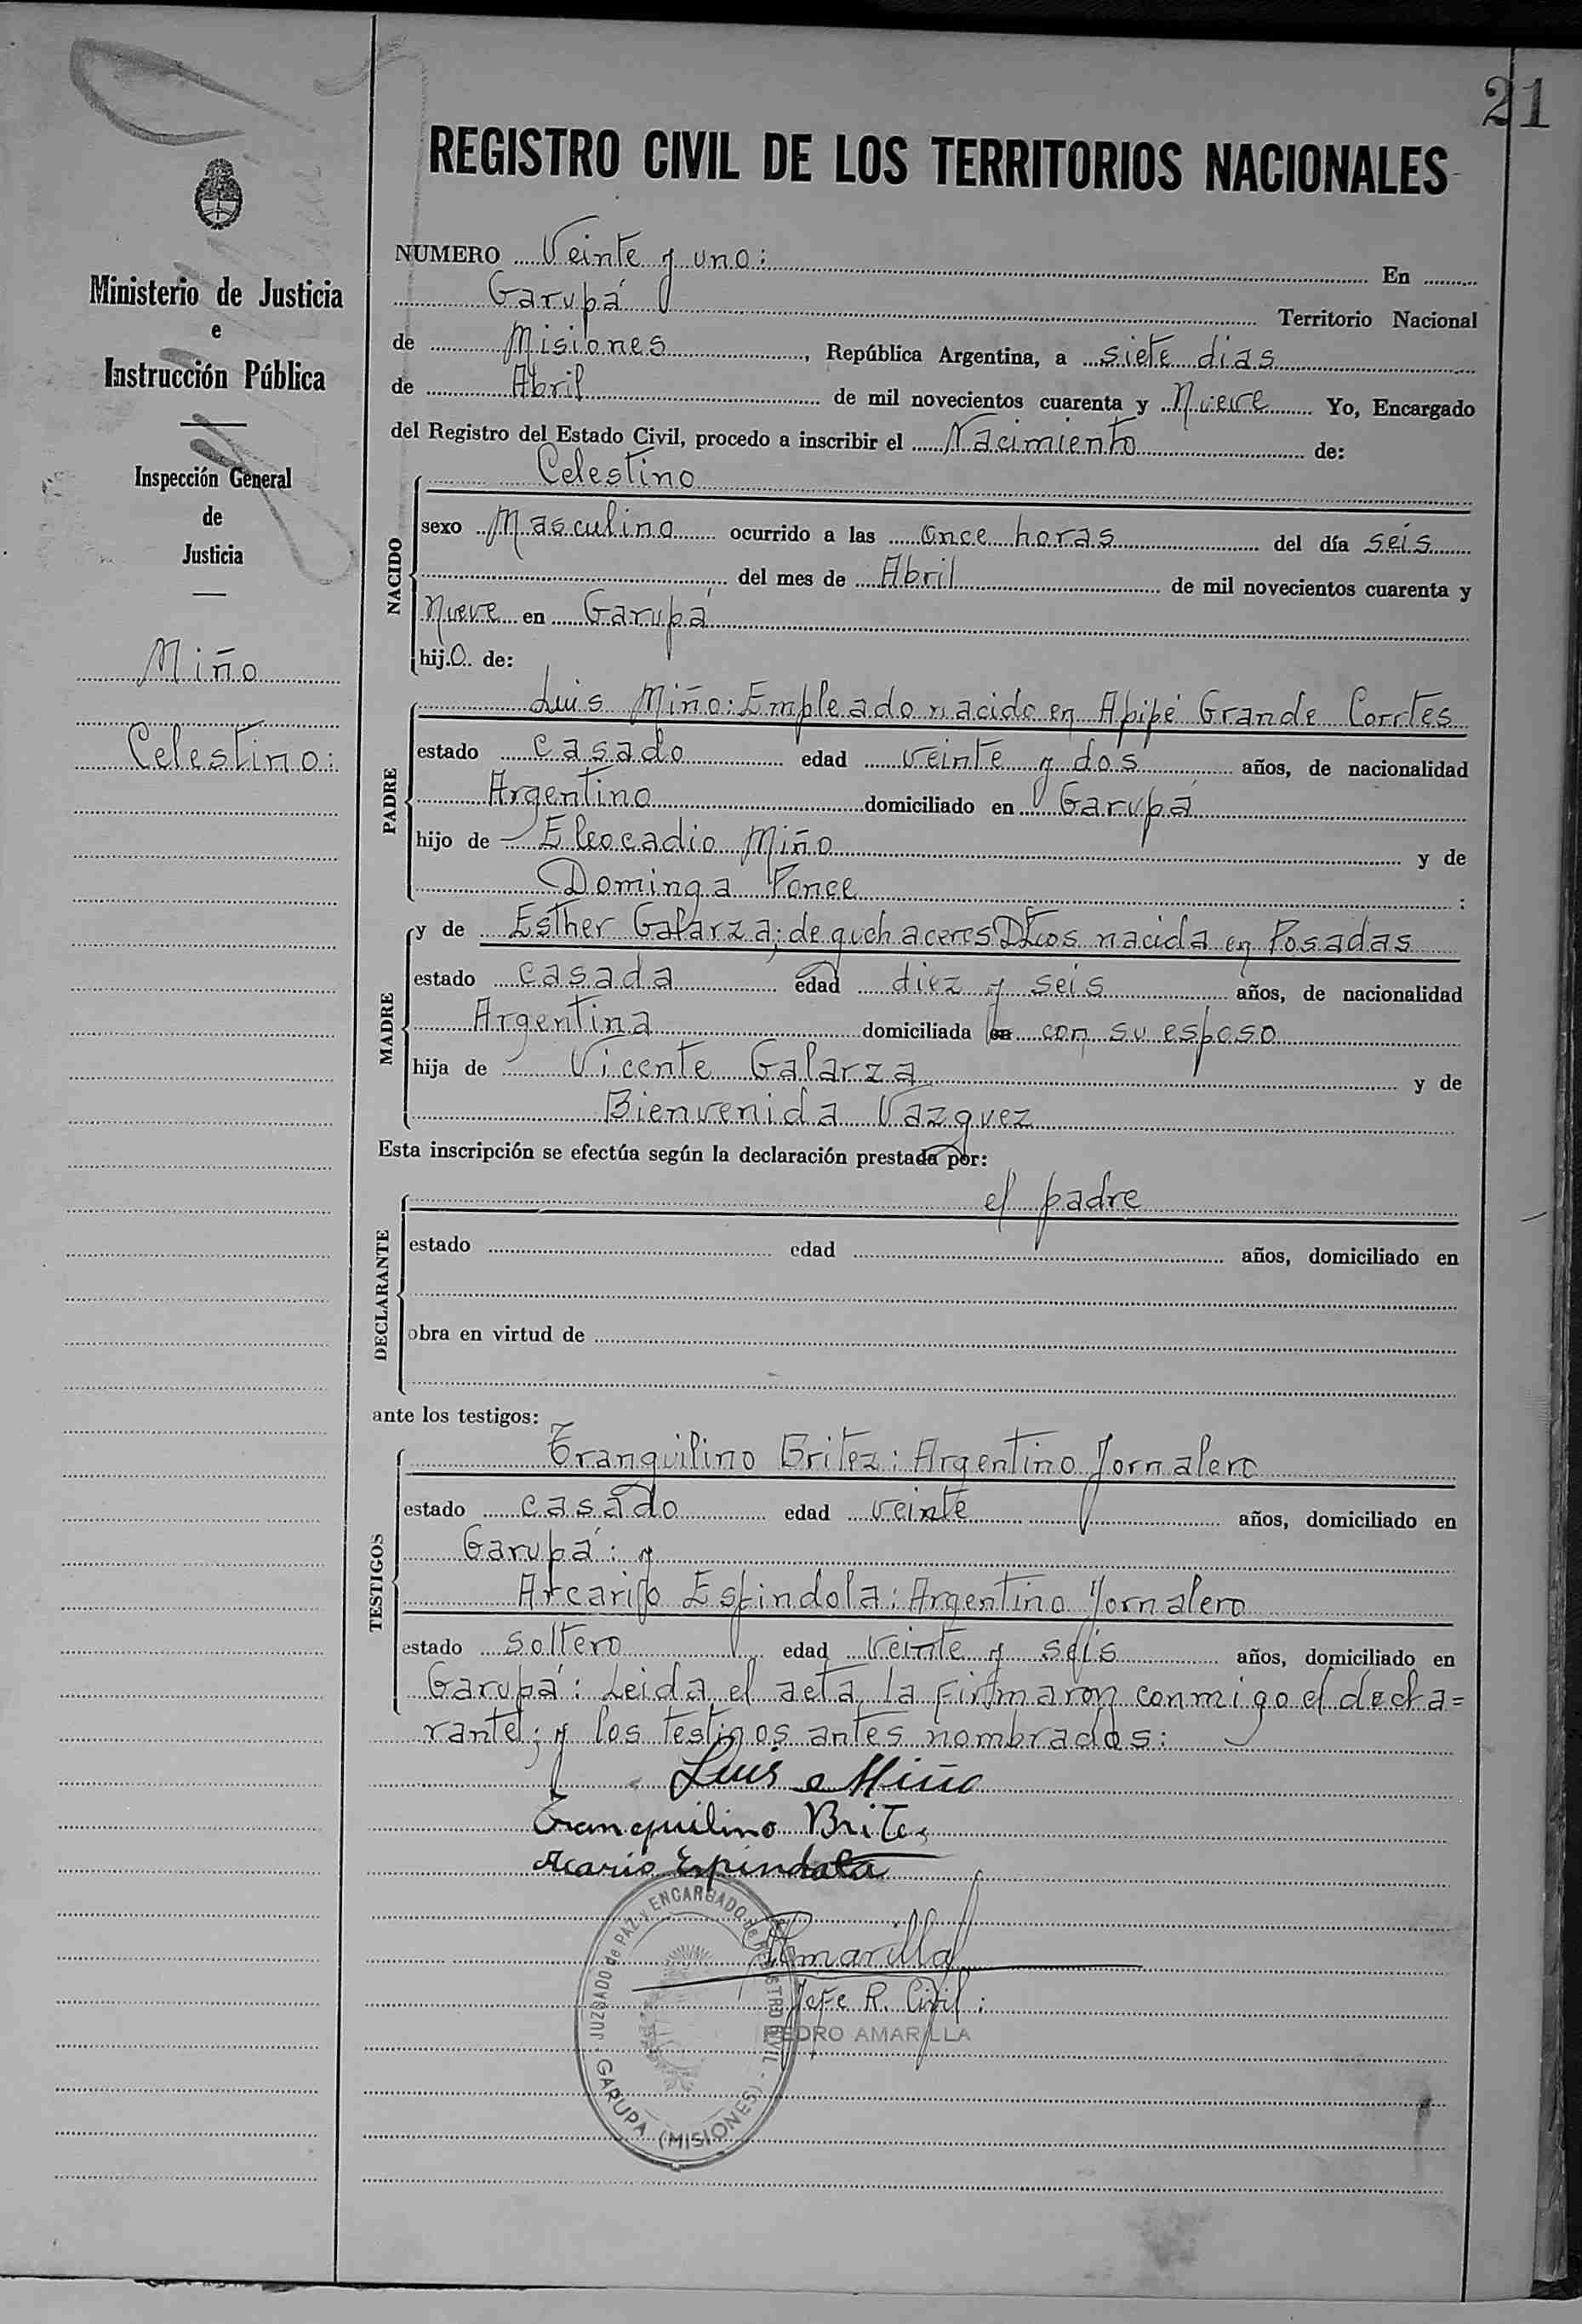 21
REGISTRO CIVIL DE LOS TERRITORIOS NACIONALES
Ministerio de Justicia
e
Instrucción Pública
Inspección General
de
Justicia
Miño
Celestino:
NUMERO Veinte y uno: En
Garupá Territorio Nacional
de Misiones, República Argentina, a siete dias
de Abril de mil novecientos cuarenta y Nueve Yo, Encargado
del Registro del Estado Civil, procedo a inscribir el Nacimiento de:
NACIDO
Celestino
sexo Masculino ocurrido a las once horas del día seis
del mes de Abril de mil novecientos cuarenta y
Nueve en Garupá
hijo de:
PADRE
Luis Miño: Empleado nacido en Apipé Grande Corrtes
estado casado edad veinte y dos años, de nacionalidad
Argentino domiciliado en Garupá
hijo de Eleocadio Miño y de
Dominga Ponce :
MADRE
y de Esther Galarza; de quehaceres Dtcos nacida en Posadas
estado casada edad diez y seis años, de nacionalidad
Argentina domiciliada en con su esposo
hija de Vicente Galarza y de
Bienvenida Vazquez
Esta inscripción se efectúa según la declaración prestada por:
DECLARANTE
el padre
estado edad años, domiciliado en
obra en virtud de
ante los testigos:
TESTIGOS
Tranquilino Britez: Argentino Jornalero
estado casado edad veinte años, domiciliado en
Garupá: y
Arcario Espindola: Argentino Jornalero
estado soltero edad veinte y seis años, domiciliado en
Garupá: Leida el acta la firmaron conmigo el decla=
rante; y los testigos antes nombrados:
Luis Miño
Tranquilino Britez
Acario Espindola
Amarilla
Jefe R. Civil:
PEDRO AMARILLA
JUZGADO de PAZ y ENCARGADO de REGISTRO CIVIL - GARUPA (MISIONES)